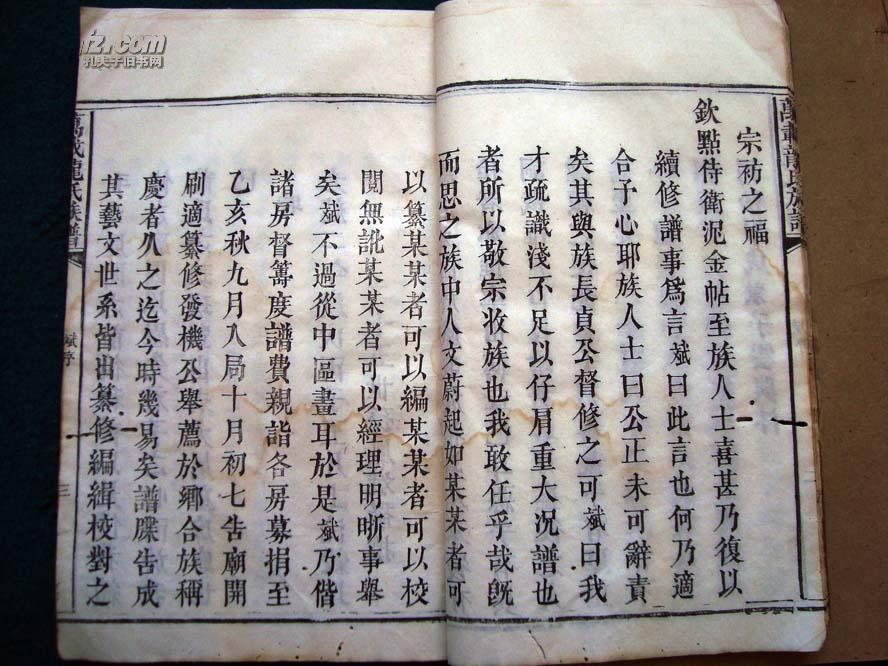 萬載龍氏族譜
宗祊之福
欽點侍衛泥金帖至族人士喜甚乃復以
續修譜事爲言斌曰此言也何乃適
合予心耶族人士曰公正未可辭責
矣其與族長貞公督修之可斌曰我
才疏識淺不足以仔肩重大況譜也
者所以敬宗收族也我敢任乎哉旣
而思之族中人文蔚起如某某者可
以纂某某者可以編某某者可以校
閱無訛某某者可以經理明晰事舉
矣斌不過從中區畫耳於是斌乃偕
諸房督籌度譜費親詣各房募捐至
乙亥秋九月入局十月初七告廟開
刷適纂修發機公舉薦於鄉合族稱
慶者久之迄今時幾易矣譜牒告成
其藝文世系皆出纂修編緝校對之
萬載龍氏族譜
斌序
三
iz.com
孔夫子旧书网